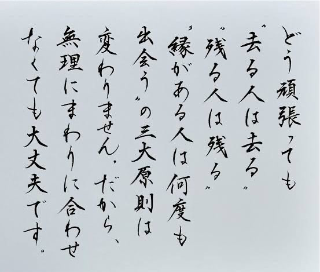 どう頑張っても
"去る人は去る"
"残る人は残る"
"縁がある人は何度も
出会う"の三大原則は
変わりません。だから、
無理にまわりに合わせ
なくても大丈夫です。